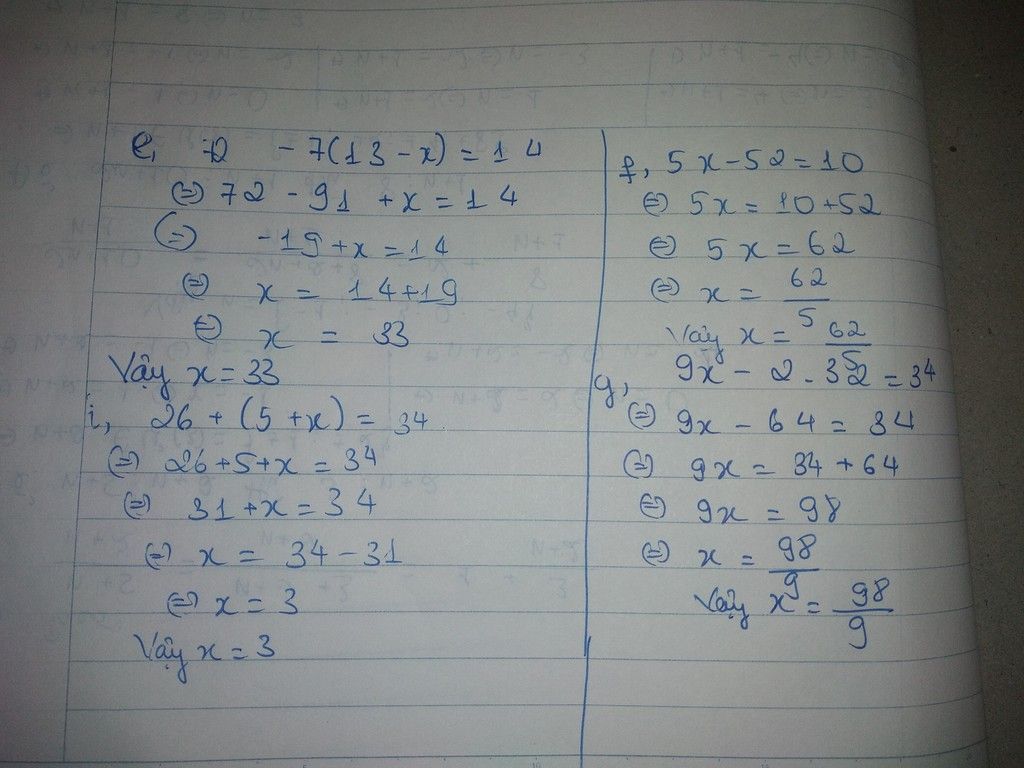 e, 72 - 7(13 - x) = 14
⇔ 72 - 91 + x = 14
⇔ -19 + x = 14
⇔ x = 14+19
⇔ x = 33
Vậy x = 33
i, 26 + (5 + x) = 34
⇔ 26 + 5 + x = 34
⇔ 31 + x = 34
⇔ x = 34 - 31
⇔ x = 3
Vậy x = 3
f, 5x - 52 = 10
⇔ 5x = 10 + 52
⇔ 5x = 62
⇔ x = 62/5
Vậy x = 62/5
g, 9x - 2 . 32 = 34
⇔ 9x - 64 = 34
⇔ 9x = 34 + 64
⇔ 9x = 98
⇔ x = 98/9
Vậy x = 98/9